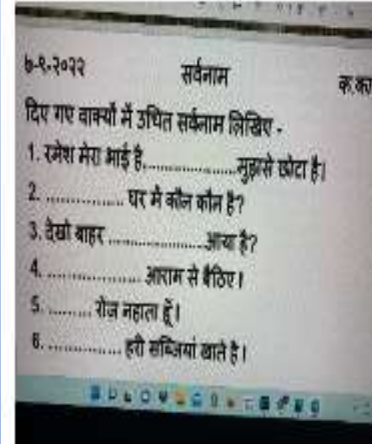 ७-९-२०२२ सर्वनाम क.का
दिए गए वाक्यों में उचित सर्वनाम लिखिए -
1. रमेश मेरा भाई है,....................मुझसे छोटा है।
2. .................. घर मे कौन कौन है?
3. देखो बाहर ......................आया है?
4. ......................आराम से बैठिए।
5. ......... रोज़ नहाता हूँ।
6. ................ हरी सब्जियां खाते है।